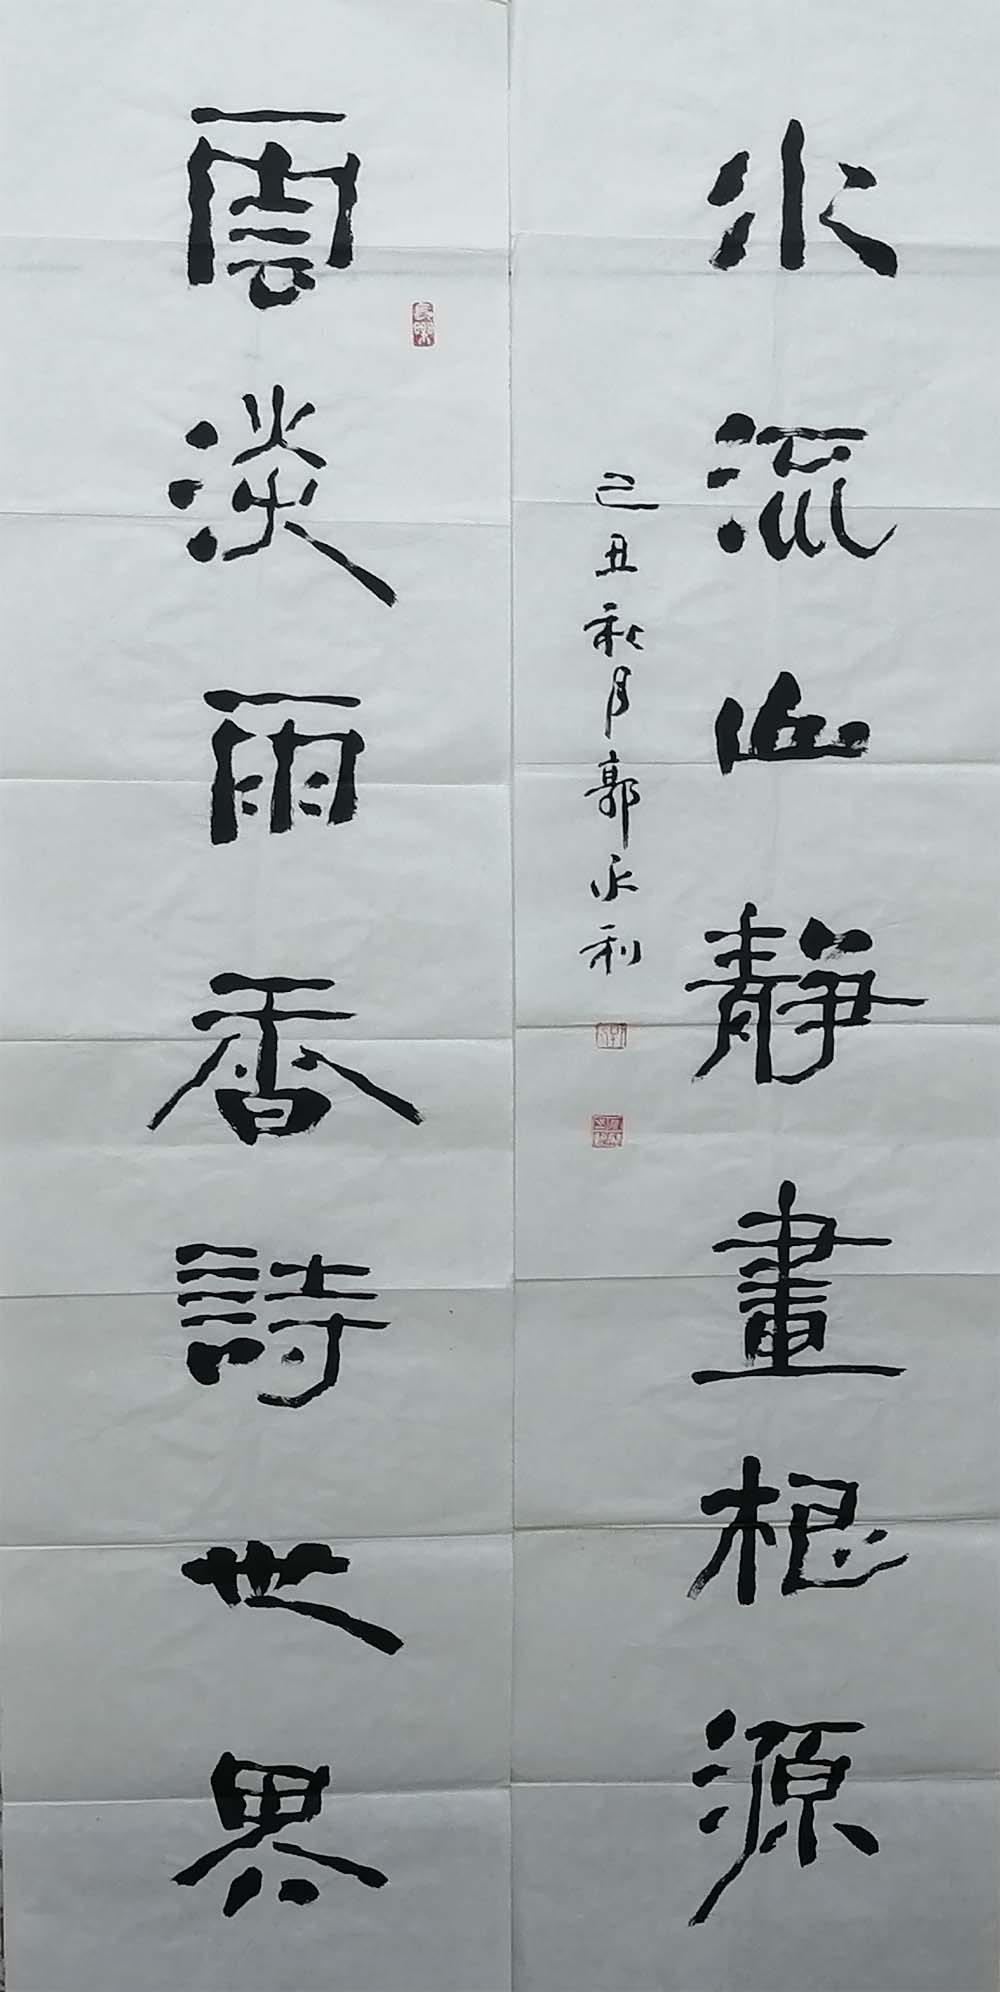 雲淡雨香詩世界
水流山靜畫根源
己丑秋月郭永利